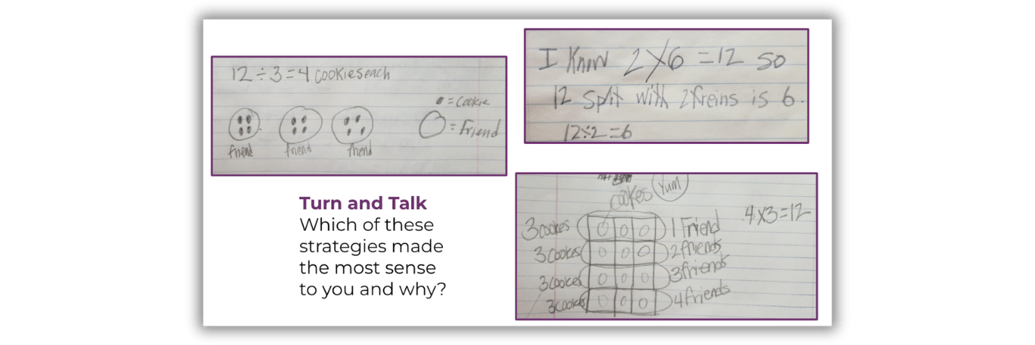 12 ÷ 3 = 4 cookies each
= Cookie
= Friend
friend friend friend
I Know 2 x 6 = 12 so
12 split with 2 freins is 6.
12÷2=6
Turn and Talk
Which of these
strategies made
the most sense
to you and why?
cookes Yum
3 cookes 1 Friend 4x3=12
3 cookes 2 friends
3 cookes 3 friends
3 cookes 4 friends